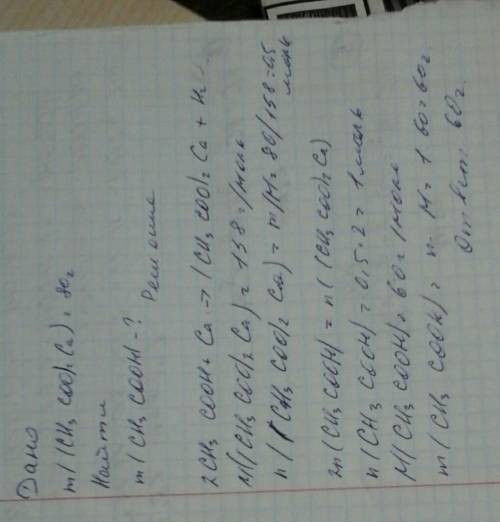 Дано
m((CH3COO)2Ca) = 80г
Найти
m(CH3COOH) - ?
Решение
2CH3COOH + Ca → (CH3COO)2Ca + H2
M((CH3COO)2Ca) = 158г/моль
n((CH3COO)2Ca) = m/M = 80/158 = 0,5
моль
2n(CH3COOH) = n((CH3COO)2Ca)
n(CH3COOH) = 0,5·2 = 1моль
M(CH3COOH) = 60г/моль
m(CH3COOH) = n·M = 1·60 = 60г
Ответ 60г